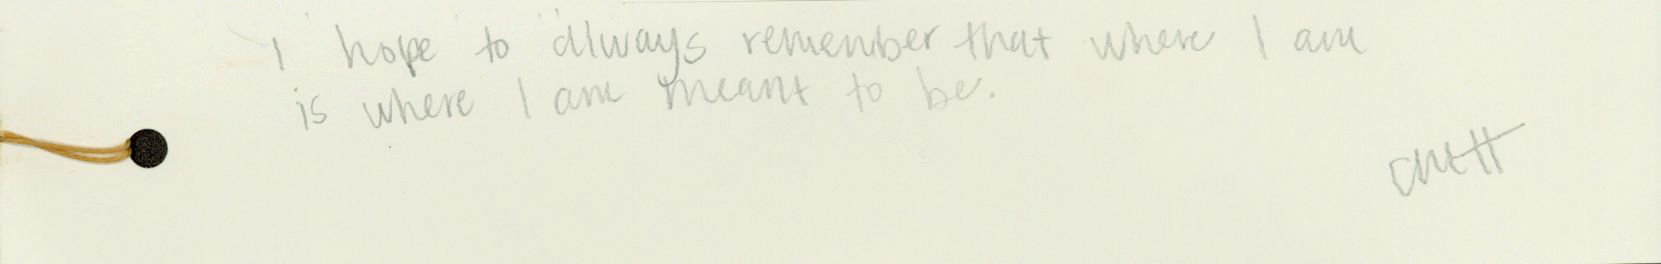 I hope to always remember that where I am
is where I am meant to be.